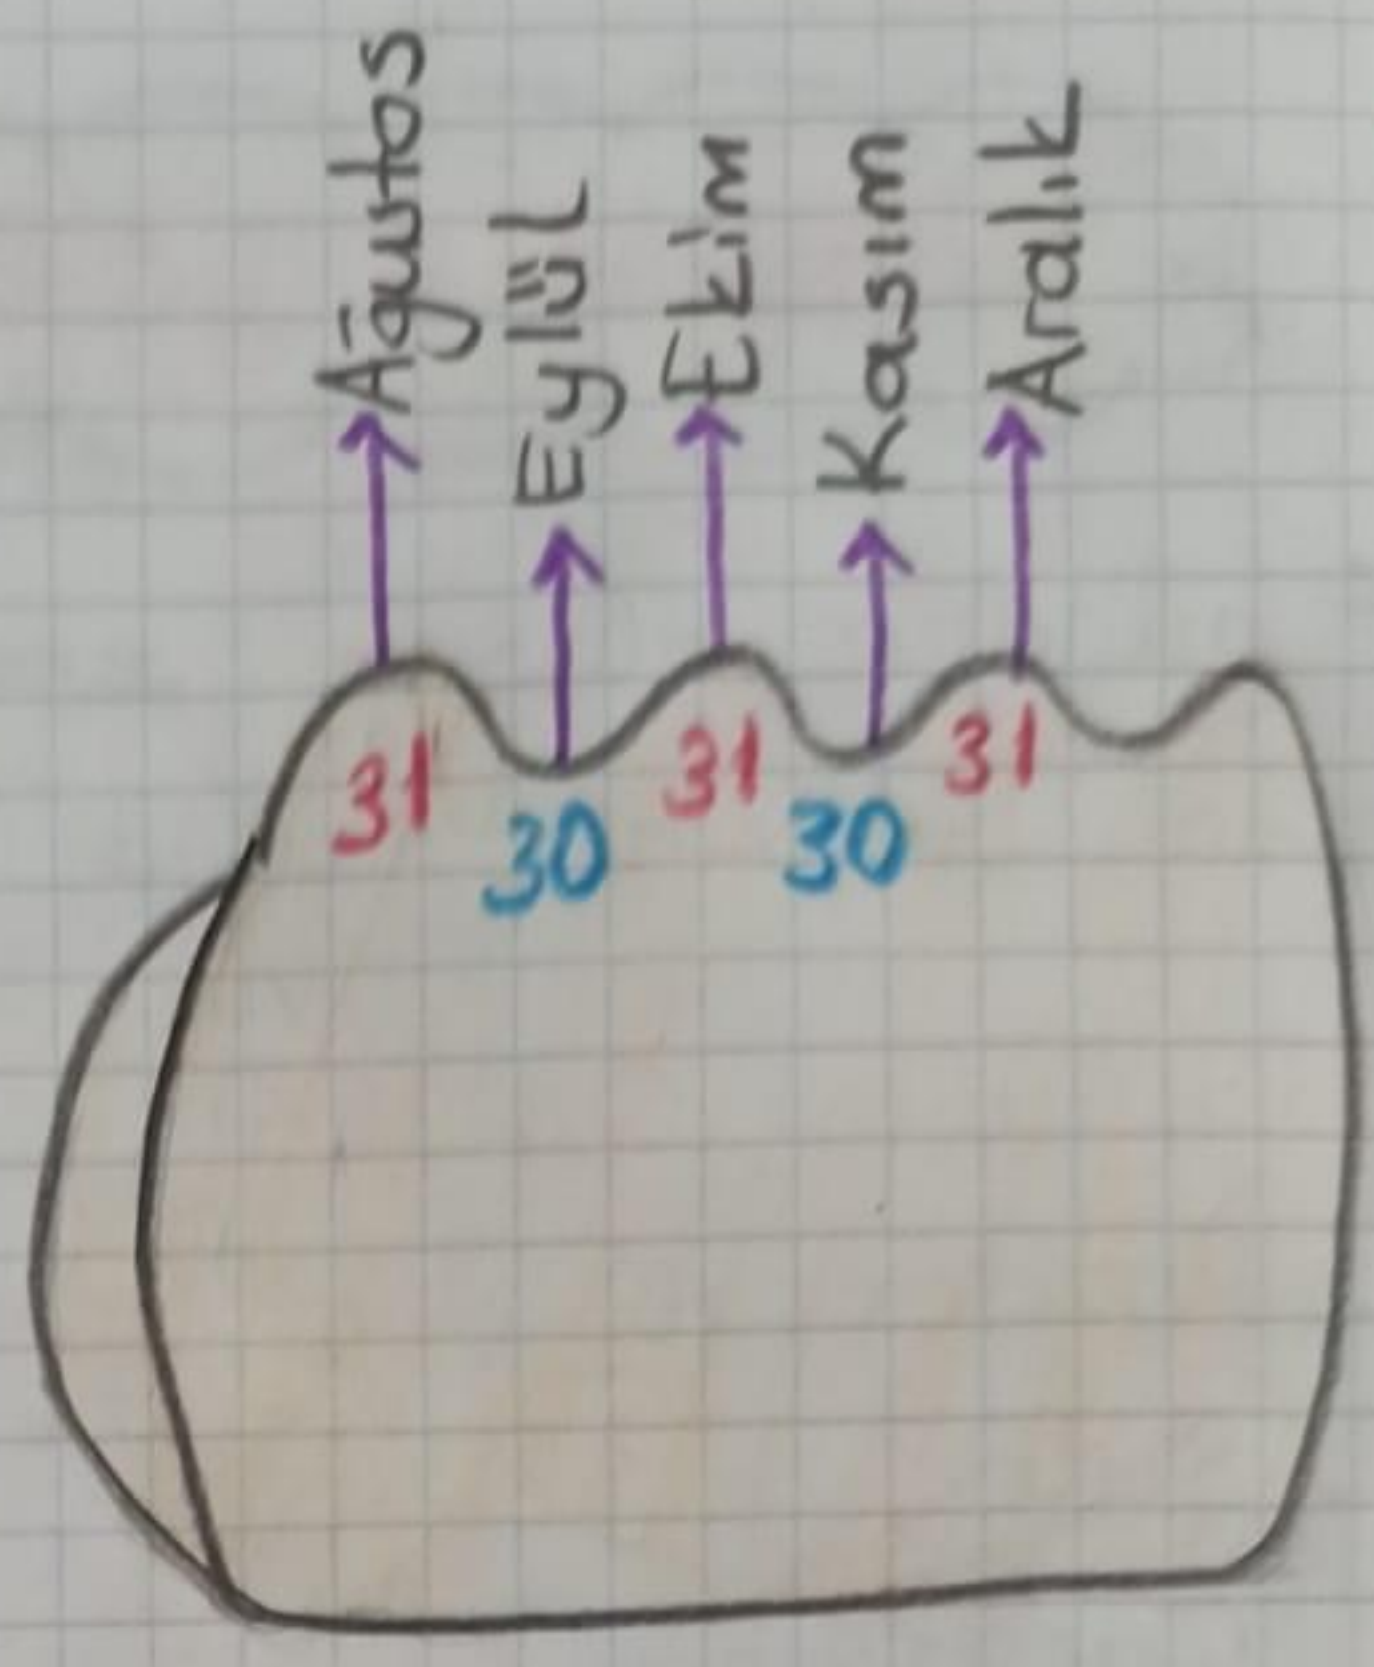 Ağustos
Eylül
Ekim
Kasım
Aralık
31
30
31
30
31